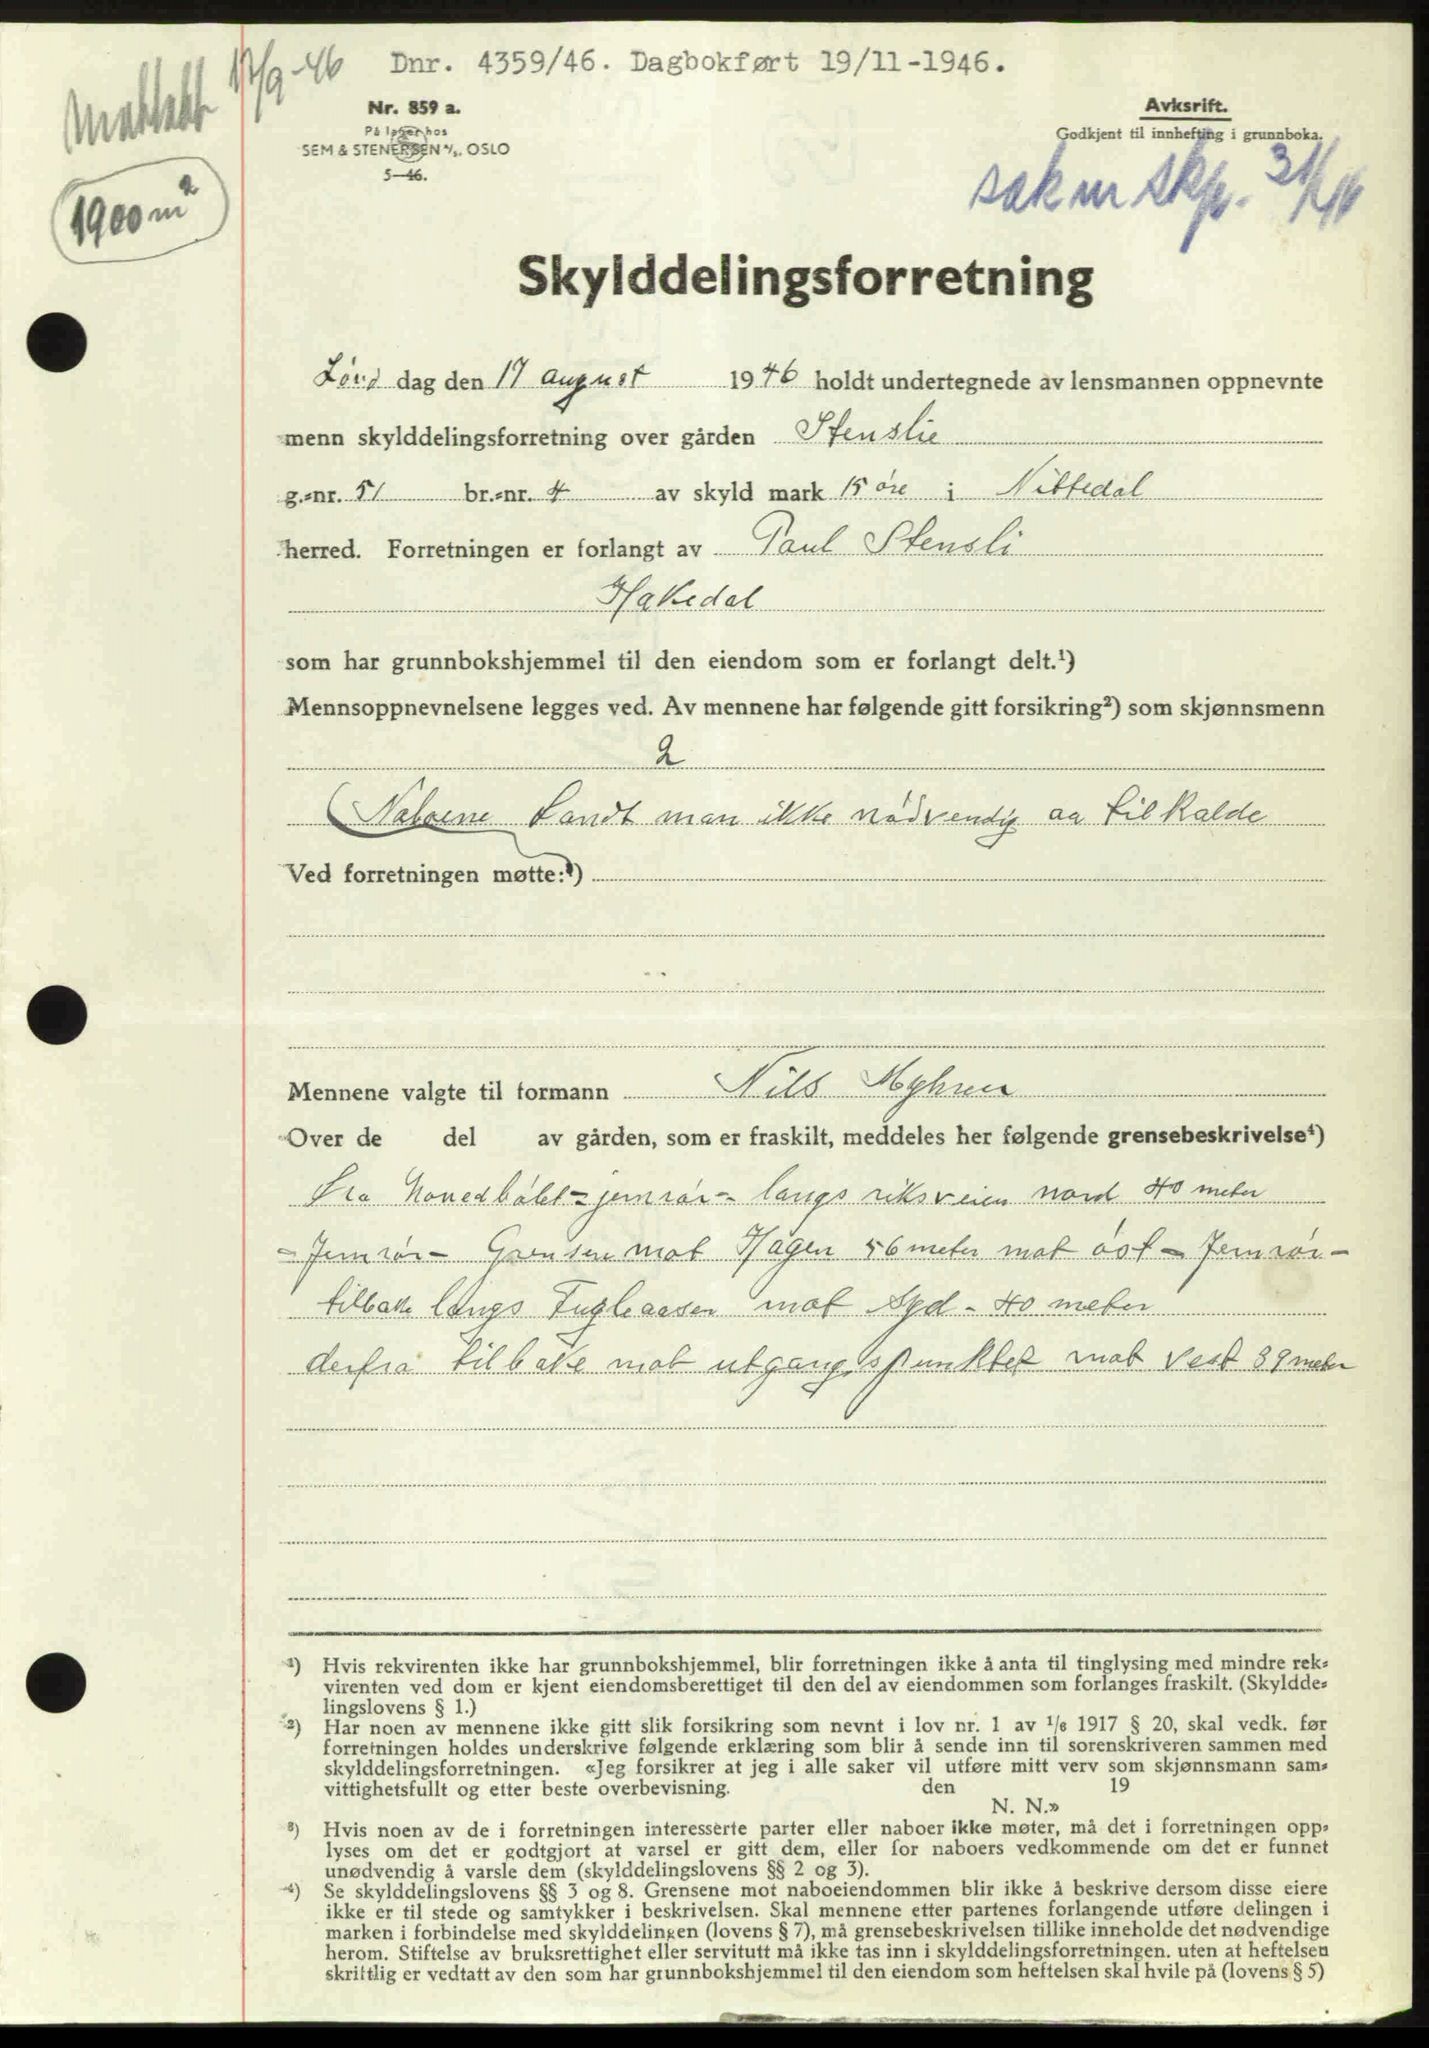 Mottatt 17/9-46
1900 m²
Dnr. 4359/46. Dagbokført 19/11-1946.
Nr. 859 a.
På lager hos
SEM & STENERSEN A/S. OSLO
5-46.
Avksrift.
Godkjent til innhefting i grunnboka.
Skylddelingsforretning
Lørd dag den 17 august 1946 holdt undertegnede av lensmannen oppnevnte
menn skylddelingsforretning over gården Stenslie
g.-nr. 51 br.-nr. 4 av skyld mark 15 øre i Nittedal
herred. Forretningen er forlangt av Paul Stensli
Hakedal
som har grunnbokshjemmel til den eiendom som er forlangt delt.¹)
Mennsoppnevnelsene legges ved. Av mennene har følgende gitt forsikring²) som skjønnsmenn
2
(Naboene fandt man ikke nødvendig aa tilkalde
Ved forretningen møtte:³)
Mennene valgte til formann Nils Myhren
Over de del av gården, som er fraskilt, meddeles her følgende grensebeskrivelse⁴)
fra hovedbölet - jernrør - langs riksveien nord 40 meter
- Jernrør - Grensen mot Hagen 56 meter mot öst - Jernrør -
tilbake langs Fugleaasen mot syd - 40 meter
derfra tilbake mot utgangspunktet mot vest 39 meter
¹) Hvis rekvirenten ikke har grunnbokshjemmel, blir forretningen ikke å anta til tinglysing med mindre rek-
virenten ved dom er kjent eiendomsberettiget til den del av eiendommen som forlanges fraskilt. (Skyldde-
lingslovens § 1.)
²) Har noen av mennene ikke gitt slik forsikring som nevnt i lov nr. 1 av 1/6 1917 § 20, skal vedk. før
forretningen holdes underskrive følgende erklæring som blir å sende inn til sorenskriveren sammen med
skylddelingsforretningen. «Jeg forsikrer at jeg i alle saker vil utføre mitt verv som skjønnsmann sam-
vittighetsfullt og etter beste overbevisning. den 19
N. N.»
³) Hvis noen av de i forretningen interesserte parter eller naboer ikke møter, må det i forretningen opp-
lyses om det er godtgjort at varsel er gitt dem, eller for naboers vedkommende om det er funnet
unødvendig å varsle dem (skylddelingslovens §§ 2 og 3).
⁴) Se skylddelingslovens §§ 3 og 8. Grensene mot naboeiendommen blir ikke å beskrive dersom disse eiere
ikke er til stede og samtykker i beskrivelsen. Skal mennene etter partenes forlangende utføre delingen i
marken i forbindelse med skylddelingen (lovens § 7), må grensebeskrivelsen tillike inneholde det nødvendige
herom. Stiftelse av bruksrettighet eller servitutt må ikke tas inn i skylddelingsforretningen. uten at heftelsen
skriftlig er vedtatt av den som har grunnbokshjemmel til den eiendom som heftelsen skal hvile på (lovens § 5)